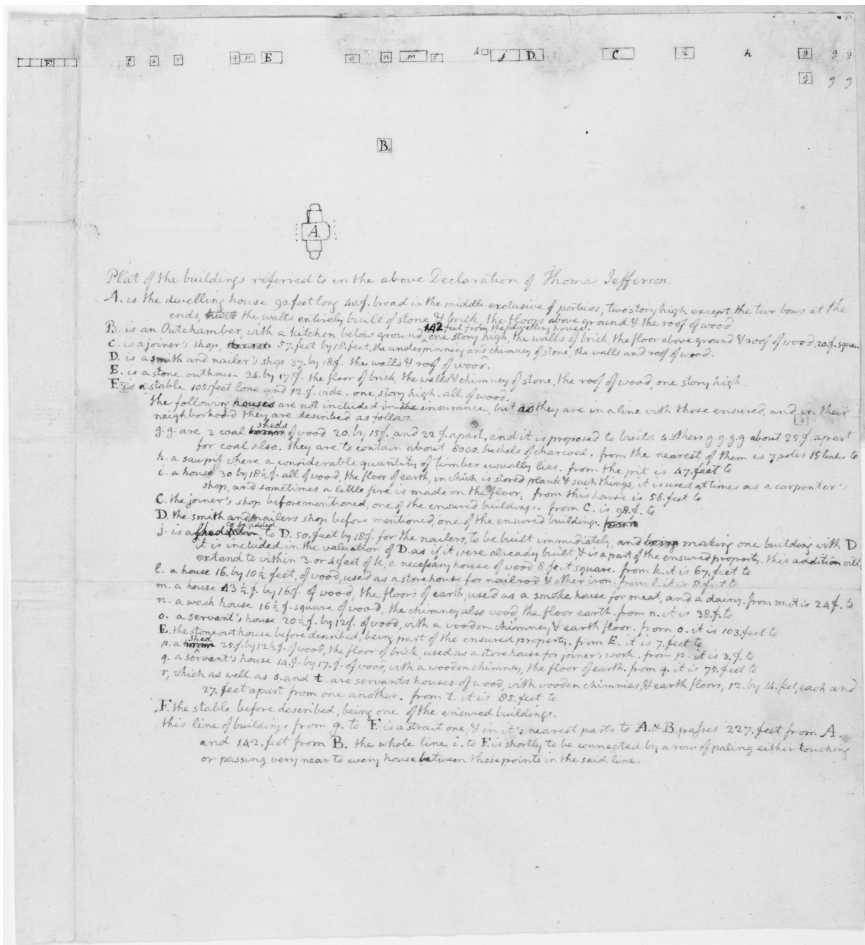 F. t s r q p E o n m l k j D. C i h g g g
g g g
B.
A.
Plat of the buildings referred to in the above Declaration of Thomas Jefferson.
A. is the dwelling house 90. feet long 40. f. broad in the middle exclusive of porticos, two story high except the two bows at the
ends, the walls entirely built of stone & brick, the floors above ground & the roof of wood.
B. is an Outchamber with a kitchen below ground, 142 feet from the dwelling house, one story high, the walls of brick the floor above ground & roof of wood, 20. f. square
C. is a joiner's shop, 57. feet by 18. feet, the underpinning and chimney of stone, the walls and roof of wood.
D. is a smith and nailer's shop 37. by 18. f. the walls & roof of wood.
E. is a stone outhouse 34. by 17. f. the floor of brick, the walls & chimney of stone, the roof of wood, one story high.
F. is a stable 105. feet long and 12. f. wide. one story high. all of wood.
the following houses are not included in the insurance, but as they are in a line with those ensured, and in their
neighborhood they are described as follow.
g. g. are 2 coal sheds of wood 20. by 15. f. and 22 f. apart, and it is proposed to build 4. others g. g. g. g about 25 f. apart
for coal also. they are to contain about 8000. bushels of charcoal. from the nearest of them is 7 poles 15 links to
h. a sawpit where a considerable quantity of timber usually lies. from the pit is 47. feet to
i. a house 30 by 18½ f. all of wood, the floor of earth, in which is stored plank & such things, it is used at times as a carpenter's
shop, and sometimes a little fire is made on the floor. from this house is 58. feet to
C. the joiner's shop beforementioned, one of the ensured buildings. from C. is 98. f. to
D. the smith and nailers shop before mentioned, one of the ensured buildings.
j. is a to be added to D. 50. feet by 18 f. for the nailers, to be built immediately, and making one building with D
it is included in the valuation of D. as if it were already built, & is a part of the ensured property. this addition will
extend to within 3. or 4 feet of k. a necessary house of wood 8 feet square. from k. it is 67. feet to
l. a house 16. by 10½ feet, of wood, used as a storehouse for nailrod & other iron. from l. it is 8 feet to
m. a house 43½ f. by 16 f. of wood, the floors of earth, used as a smoke house for meat, and a dairy. from m. it is 24 f. to
n. a wash house 16½ f. square of wood, the chimney also wood, the floor earth. from n. it is 38. f. to
o. a servant's house 20½ f. by 12 f. of wood, with a wooden chimney, & earth floor. from o. it is 103. feet to
E. the stone out house before described, being part of the ensured property. from E. it is 7. feet to
p. a shed 25. f. by 12½ f. of wood, the floor of brick, used as a store house for joiner's work. from p. it is 3. f. to
q. a servant's house 14. f. by 17. f. of wood, with a wooden chimney, the floor of earth. from q. it is 75. feet to
r, which as well as s. and t. are servants houses of wood, with wooden chimnies, & earth floors, 12. by 14. feet, each and
27. feet apart from one another. from t. it is 85. feet to
F. the stable before described, being one of the ensured buildings.
this line of buildings from g. to F is a strait one, & in it's nearest parts to A. & B. passes 227. feet from A.
and 142. feet from B. the whole line i. to F is shortly to be connected by a row of paling either touching
or passing very near to every house between those points in the said line.